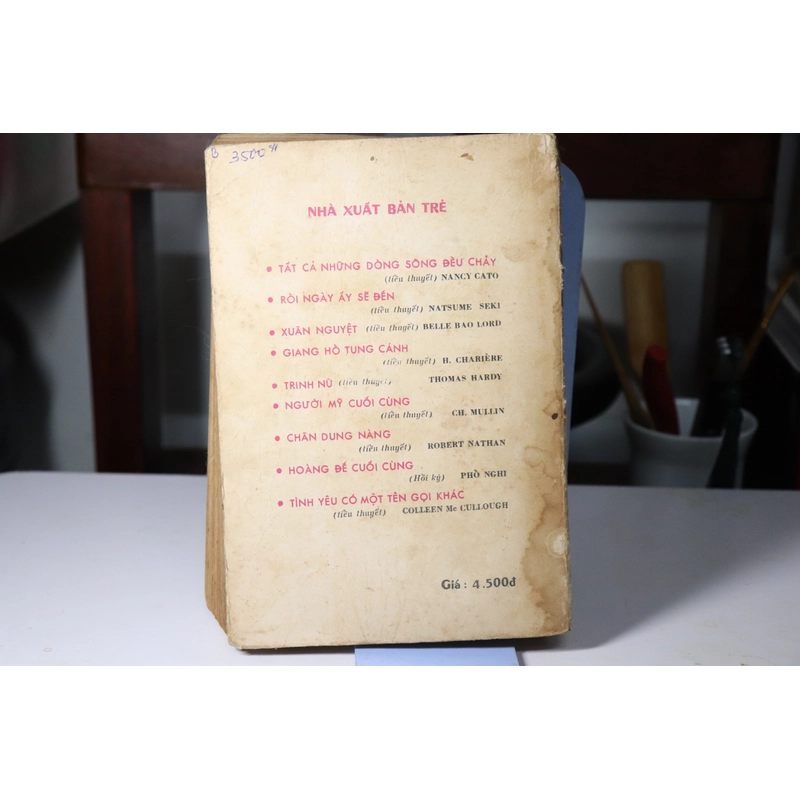 B 3500
NHÀ XUẤT BẢN TRẺ
• TẤT CẢ NHỮNG DÒNG SÔNG ĐỀU CHẢY
(tiểu thuyết) NANCY CATO
• RỒI NGÀY ẤY SẼ ĐẾN
(tiểu thuyết) NATSUME SEKI
• XUÂN NGUYỆT (tiểu thuyết) BELLE BAO LORD
• GIANG HỒ TUNG CÁNH
(tiểu thuyết) H. CHARIÈRE
• TRINH NỮ (tiểu thuyết) THOMAS HARDY
• NGƯỜI MỸ CUỐI CÙNG
(tiểu thuyết) CH. MULLIN
• CHÂN DUNG NÀNG
(tiểu thuyết) ROBERT NATHAN
• HOÀNG ĐẾ CUỐI CÙNG
(Hồi ký) PHỔ NGHI
• TÌNH YÊU CÓ MỘT TÊN GỌI KHÁC
(tiểu thuyết) COLLEEN Mc CULLOUGH
Giá : 4.500đ